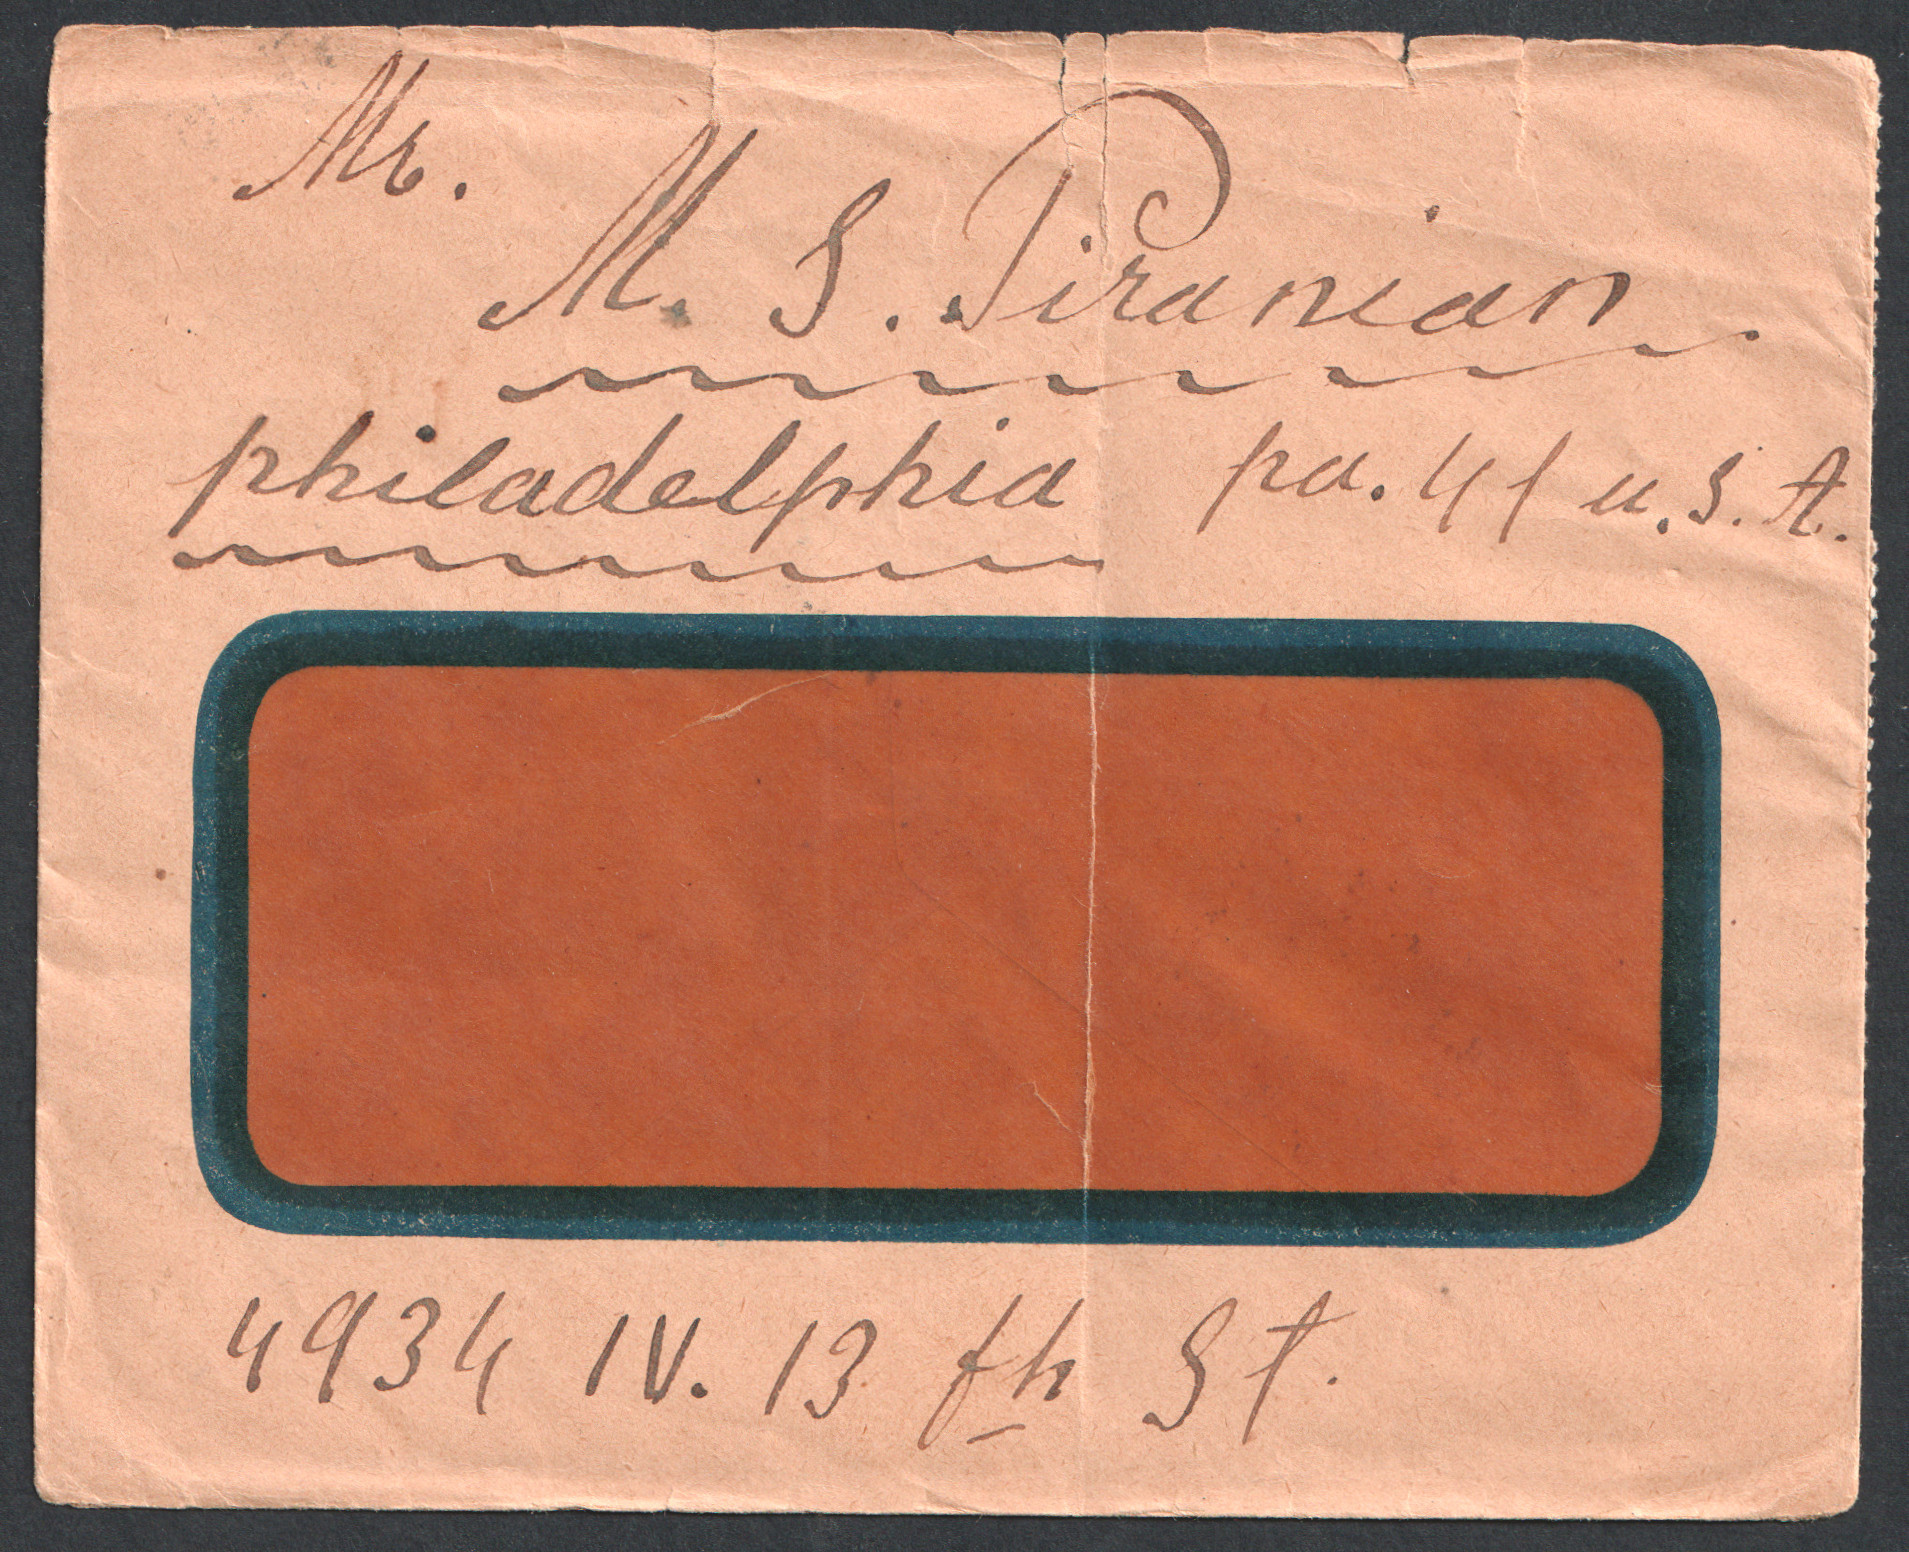 Mr.
M. S. Piranian
philadelphia pa. 41 u. S. A.
4934 N. 13 th St.